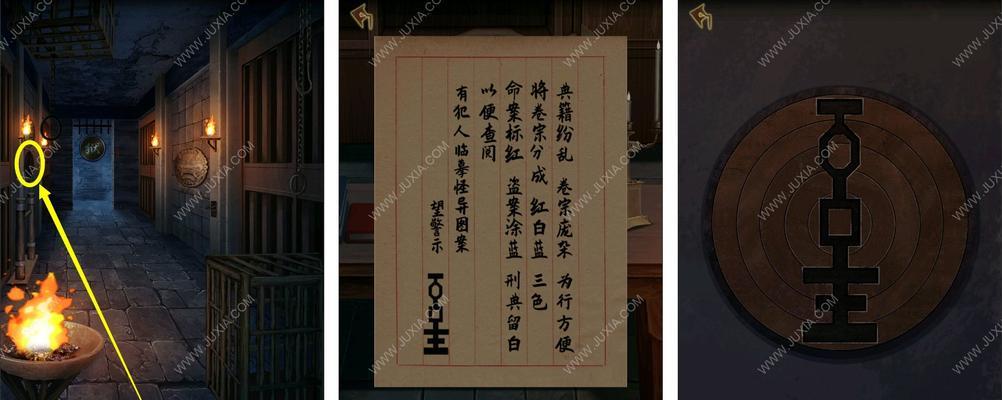 典籍纷乱 卷宗庞杂 为行方便
将卷宗分成 红白蓝 三色
命案标红 盗案涂蓝 刑典留白
以便查阅
有犯人临摹怪异图案
望警示
WWW.JUXIA.COM